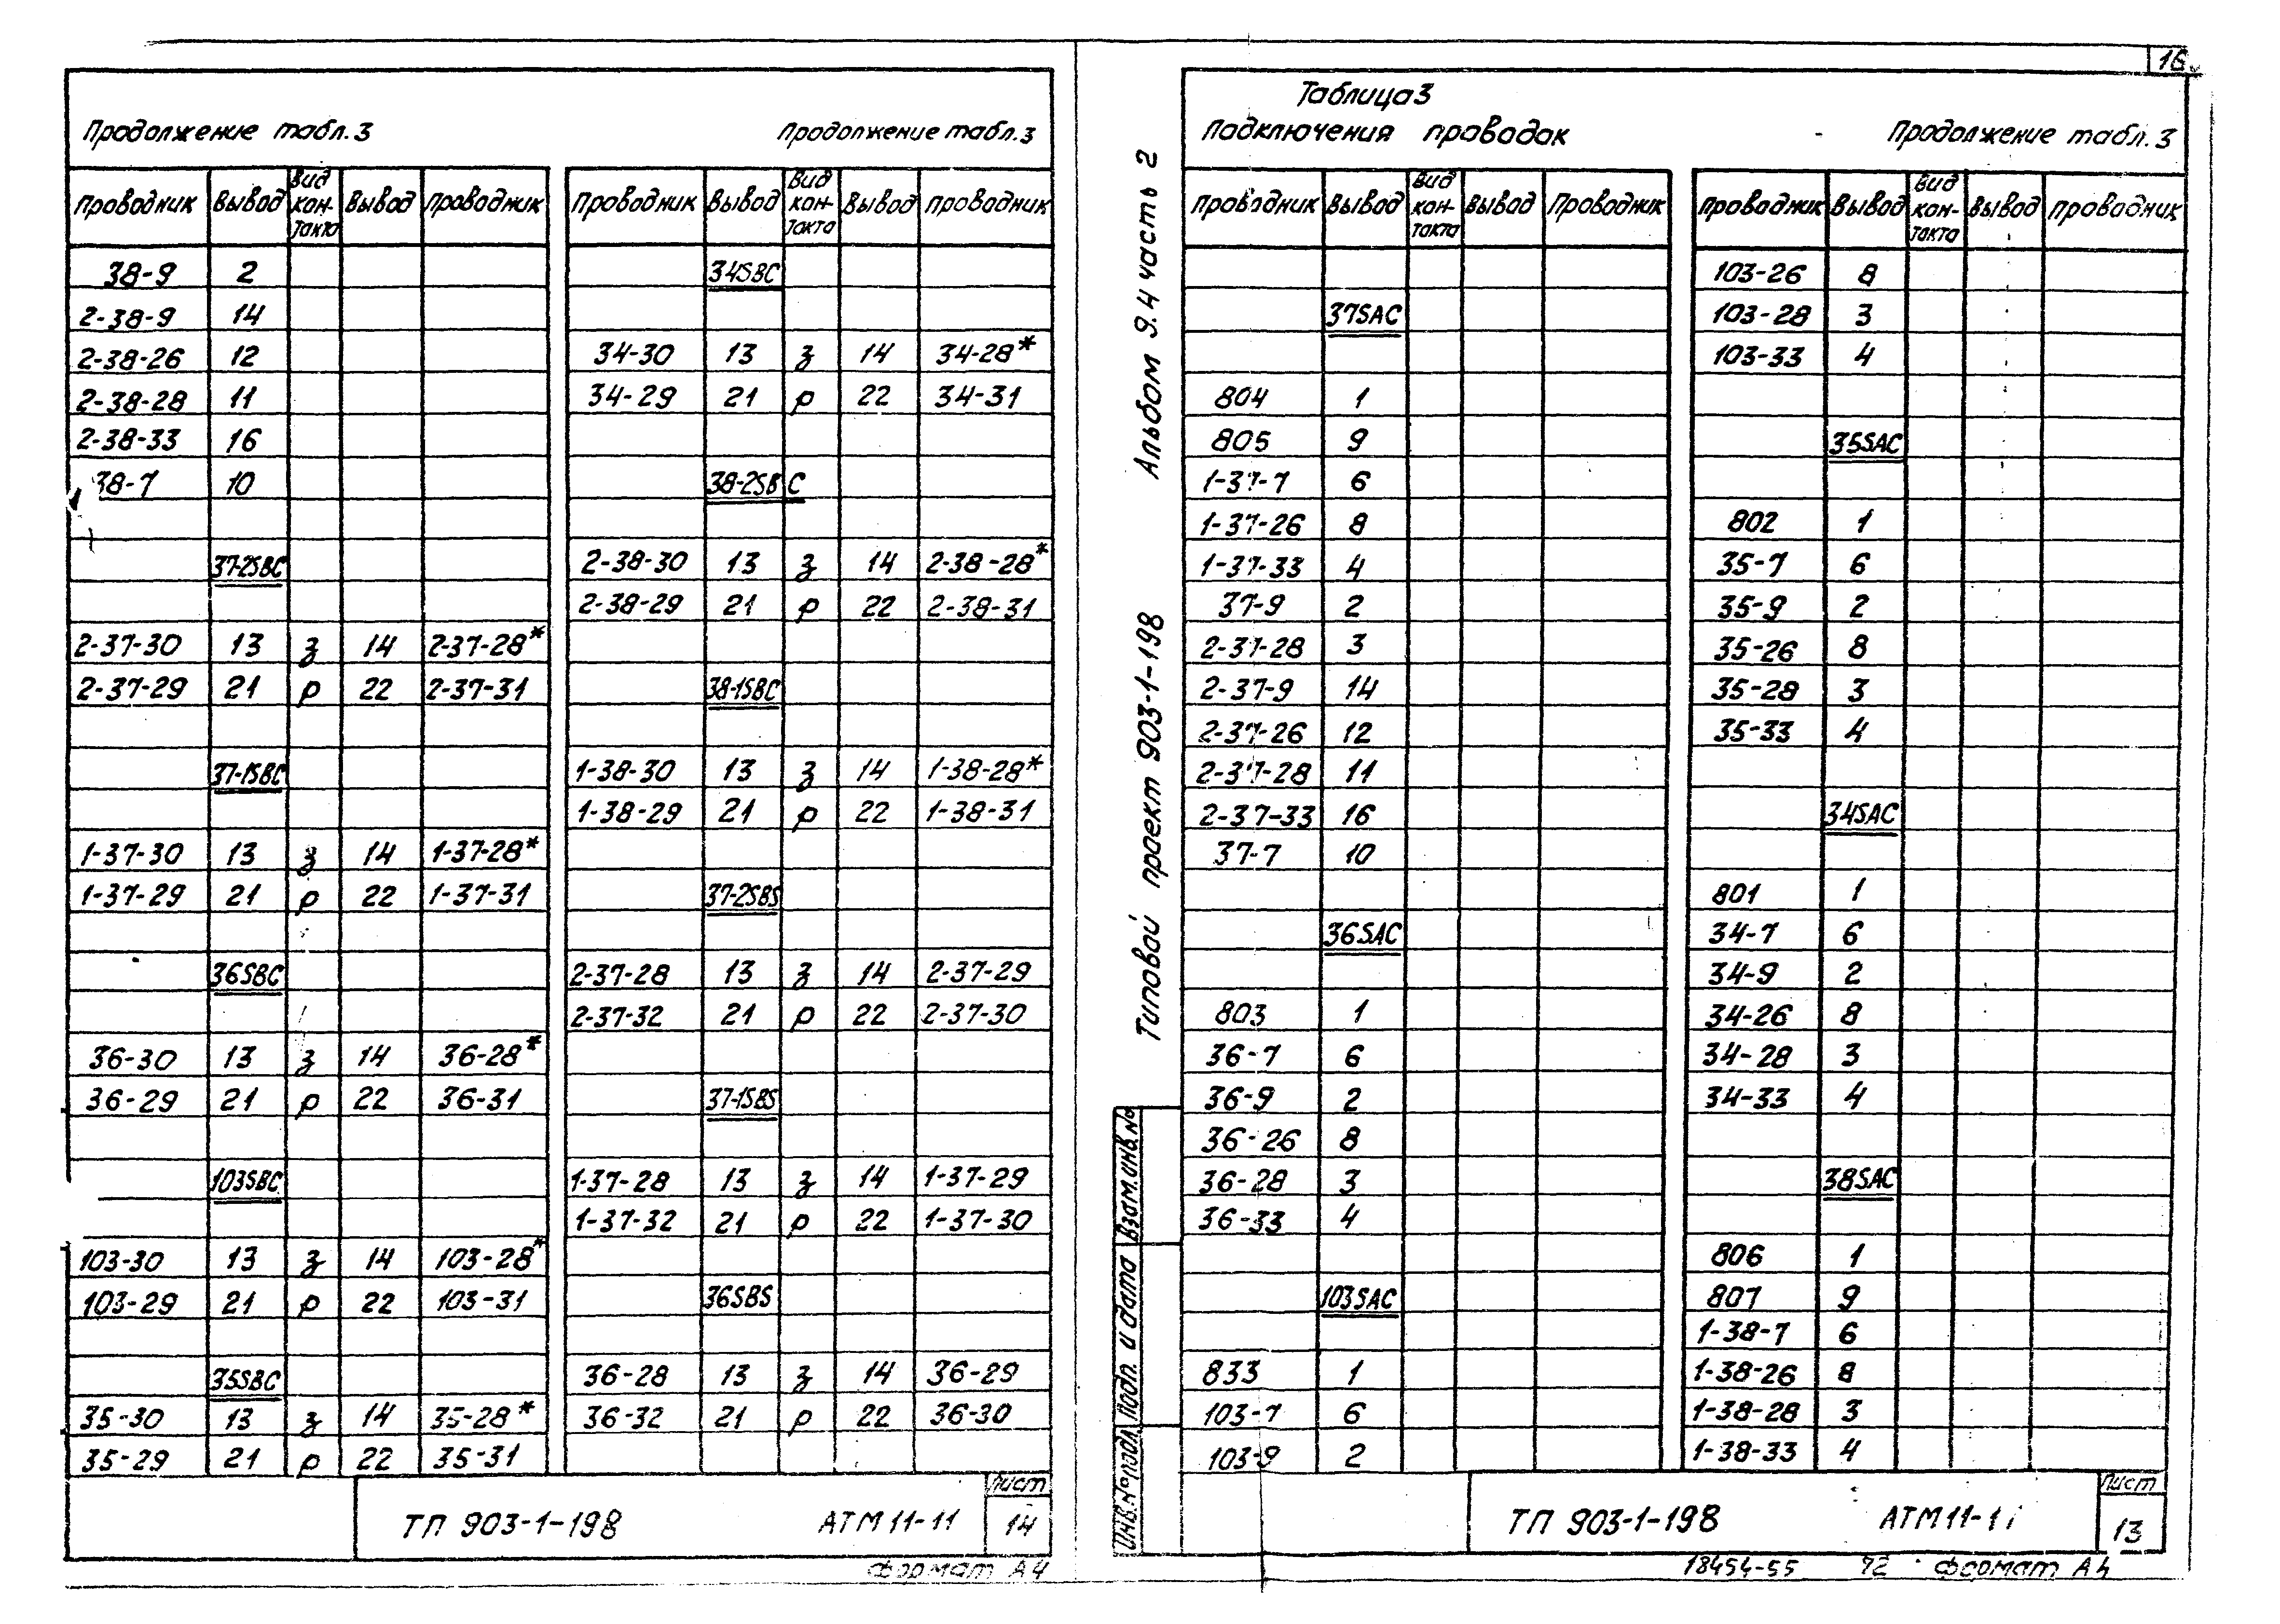 16
Продолжение табл.3
Продолжение табл.3
Проводник Вывод Вид кон-такта Вывод Проводник
38-9 2
2-38-9 14
2-38-26 12
2-38-28 11
2-38-33 16
38-7 10
37-2SBC
2-37-30 13 з 14 2-37-28*
2-37-29 21 р 22 2-37-31
37-1SBC
1-37-30 13 з 14 1-37-28*
1-37-29 21 р 22 1-37-31
36SBC
36-30 13 з 14 36-28*
36-29 21 р 22 36-31
103SBC
103-30 13 з 14 103-28*
103-29 21 р 22 103-31
35SBC
35-30 13 з 14 35-28*
35-29 21 р 22 35-31
Проводник Вывод Вид кон-такта Вывод Проводник
34SBC
34-30 13 з 14 34-28*
34-29 21 р 22 34-31
38-2SBC
2-38-30 13 з 14 2-38-28*
2-38-29 21 р 22 2-38-31
38-1SBC
1-38-30 13 з 14 1-38-28*
1-38-29 21 р 22 1-38-31
37-2SBS
2-37-28 13 з 14 2-37-29
2-37-32 21 р 22 2-37-30
37-1SBS
1-37-28 13 з 14 1-37-29
1-37-32 21 р 22 1-37-30
36SBS
36-28 13 з 14 36-29
36-32 21 р 22 36-30
ТП 903-1-198 АТМ11-11
Лист
14
Формат А4
Альбом 9.4 часть 2
Типовой проект 903-1-198
Взам.инв.№
Подп. и дата
Инв.№подл.
Таблица3
Подключения проводок
Продолжение табл.3
Проводник Вывод Вид кон-такта Вывод Проводник
37SAC
804 1
805 9
1-37-7 6
1-37-26 8
1-37-33 4
37-9 2
2-37-28 3
2-37-9 14
2-37-26 12
2-37-28 11
2-37-33 16
37-7 10
36SAC
803 1
36-7 6
36-9 2
36-26 8
36-28 3
36-33 4
103SAC
833 1
103-7 6
103-9 2
Проводник Вывод Вид кон-такта Вывод Проводник
103-26 8
103-28 3
103-33 4
35SAC
802 1
35-7 6
35-9 2
35-26 8
35-28 3
35-33 4
34SAC
801 1
34-7 6
34-9 2
34-26 8
34-28 3
34-33 4
38SAC
806 1
807 9
1-38-7 6
1-38-26 8
1-38-28 3
1-38-33 4
ТП 903-1-198 АТМ11-11
Лист
13
18454-55 72 Формат А4